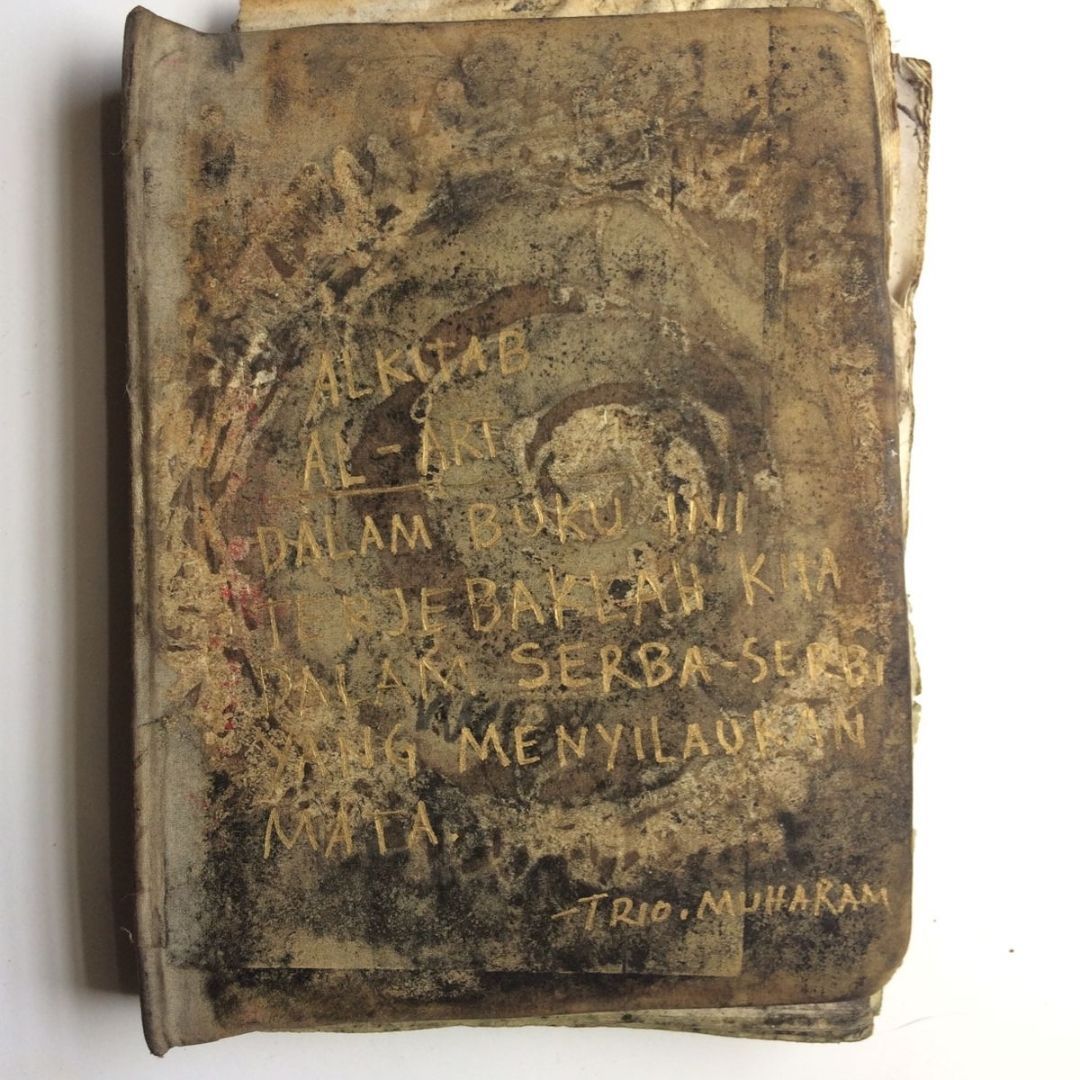 ALKITAB
AL - ART
DALAM BUKU INI
TERJEBAKLAH KITA
DALAM SERBA-SERBI
YANG MENYILAUKAN
MATA.
-TRIO.MUHARAM